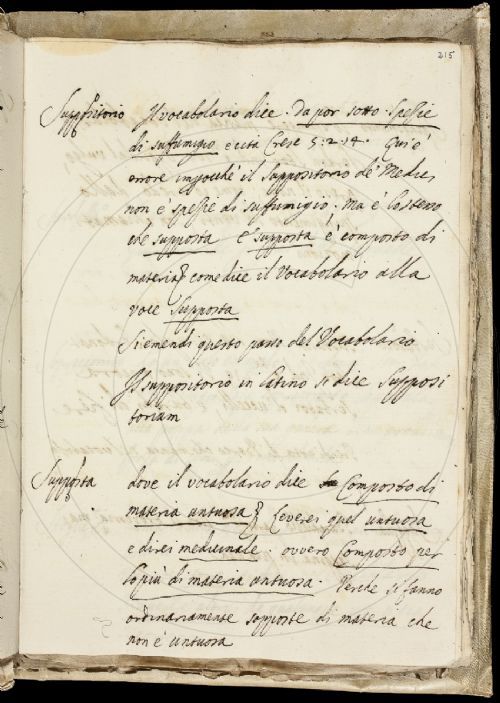 215
Suppositorio Il vocabolario dice. Da por sotto. Spezie
di suffumigio e cita Cresc 5. 2. 14. Qui è
errore impochè il Suppositorio de' Medici
non è spezie di suffumigio. Ma è lo stesso
che supposta e supposta è composto di
materia come dice il Vocabolario alla
voce Supposta
Si emendi questo passo del Vocabolario
Il suppositorio in latino si dice Supposi
torium
Supposta dove il vocabolario dice Composto di
materia untuosa leverei quel untuosa
e direi medicinale. ovvero Composto per
lo più di materia untuosa. Perche si fanno
ordinariamente supposte di materia che
non è untuosa